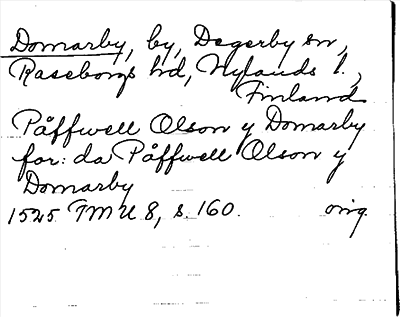 Domarby, by, Degerby sn,
Raseborgs hd, Nylands l.,
Finland
Påffwell Olson y Domarby
for: da Påffwell Olson y
Domarby
1525 FMU 8, s. 160. orig.